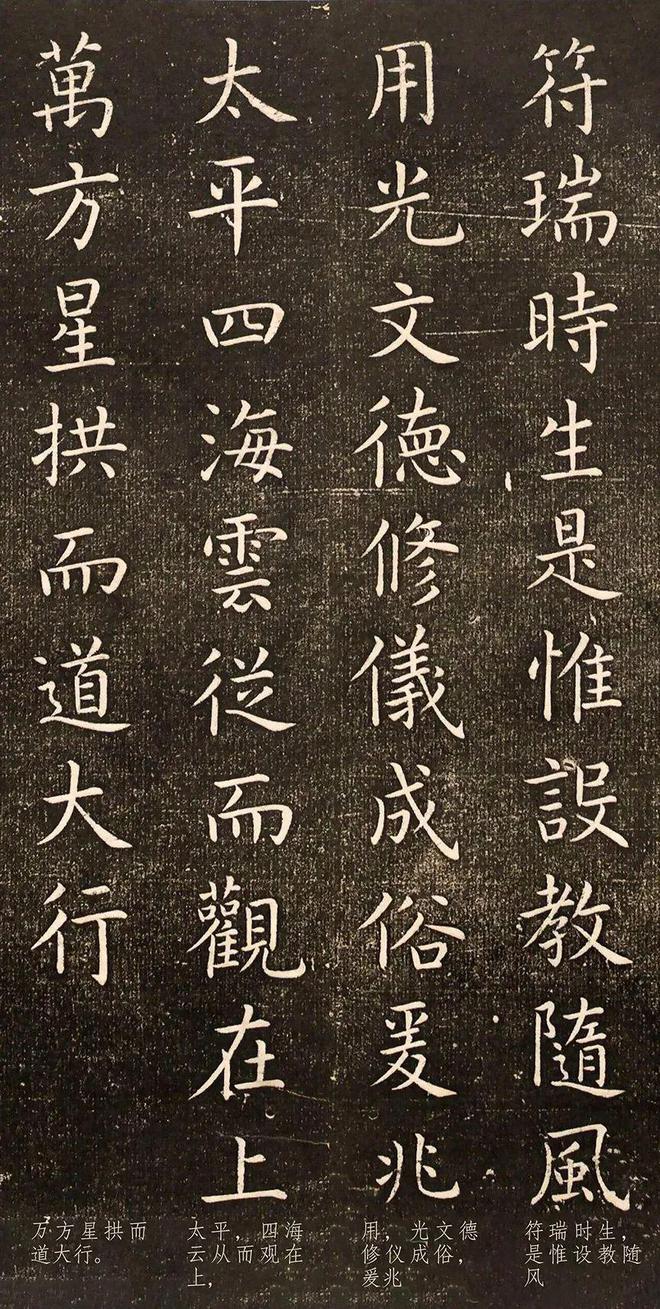 符瑞時生是惟設教隨風
用光文德修儀成俗爰兆
太平四海雲從而觀在上
萬方星拱而道大行
符瑞时生，
是惟设教随
风
用，光文德
修仪成俗，
爰兆
太平，四海
云从而观在
上，
万方星拱而
道大行。